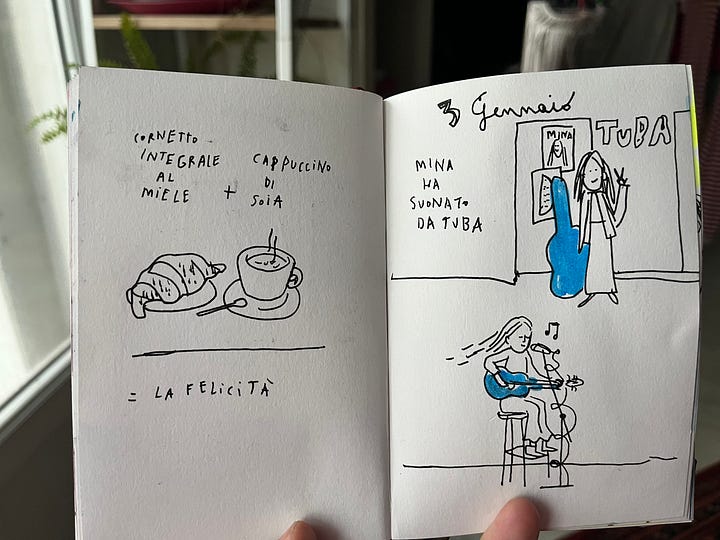 CORNETTO
INTEGRALE
AL
MIELE
+
CAPPUCCINO
DI
SOIA
= LA FELICITÀ
3 Gennaio
MINA
TUBA
MINA
HA
SUONATO
DA TUBA